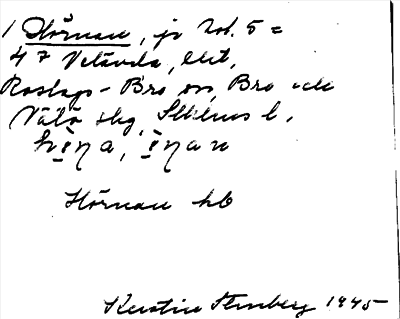 1 Hörnan, jr Nol. 5 =
47 Vetävda, Utt,
Roslags-Bro sn, Bro och
Vätö skg, Sthlms l.
hö̱ŋa, ö̱ŋan
Hörnan hb
Kerstin Stenberg 1945